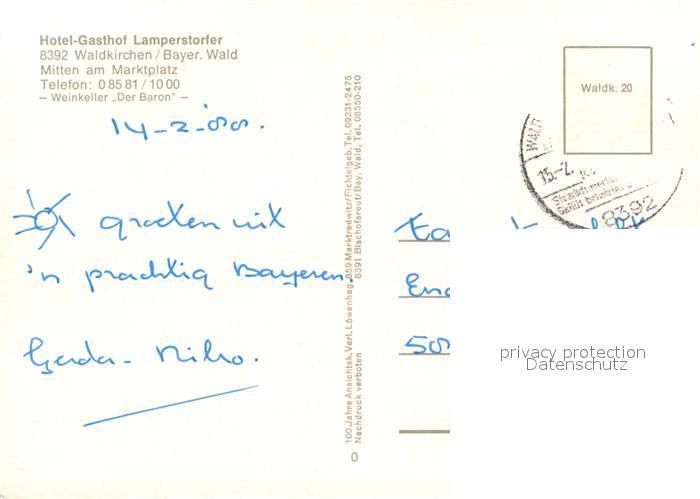 Hotel-Gasthof Lamperstorfer
8392 Waldkirchen/Bayer. Wald
Mitten am Marktplatz
Telefon: 0 85 81 / 10 00
– Weinkeller „Der Baron" –
14-2-'80.
groeten uit
'n prachtig Bayeren.
Gerda - Niko.
100 Jahre Ansichtsk. Verl. Löwenhag, 859 Marktredwitz/Fichtelgeb. Tel. 09231-2475
8391 Bischofsreut/Bay. Wald, Tel. 08550-210
Nachdruck verboten
0
Waldk. 20
15.-2.
8392
privacy protection
Datenschutz